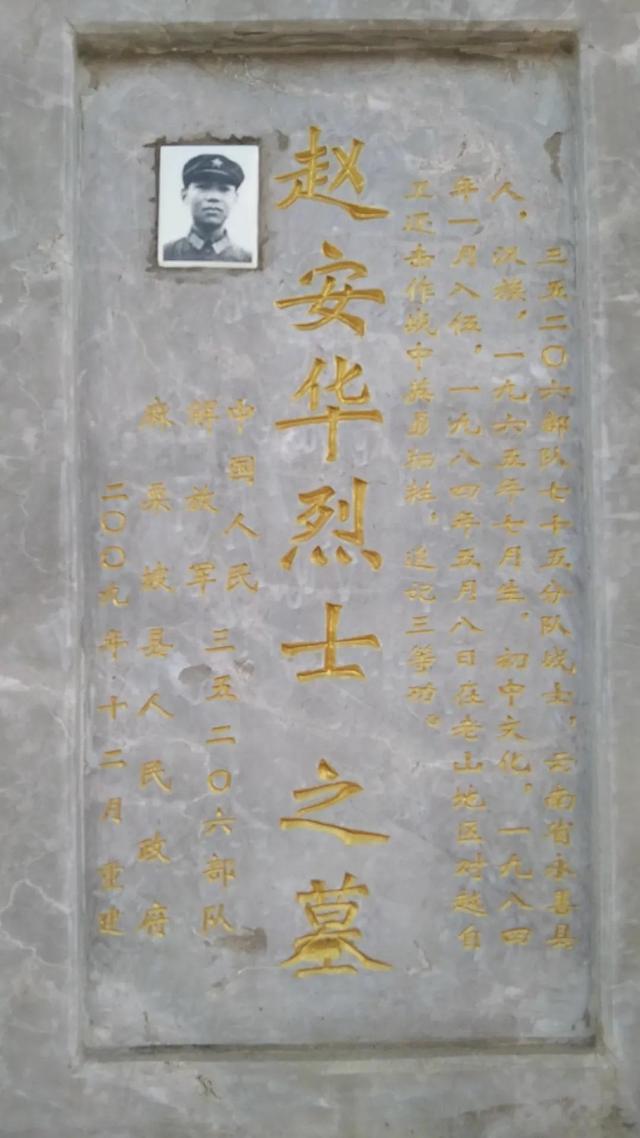 三五二〇六部队七十五分队战士，云南省永善县
人，汉族，一九六五年七月生，初中文化，一九八四
年一月入伍，一九八四年五月八日在老山地区对越自
卫还击作战中英勇牺牲，追记三等功。
赵安华烈士之墓
中国人民
解放军三五二〇六部队
麻栗坡县人民政府
二〇〇九年十二月重建